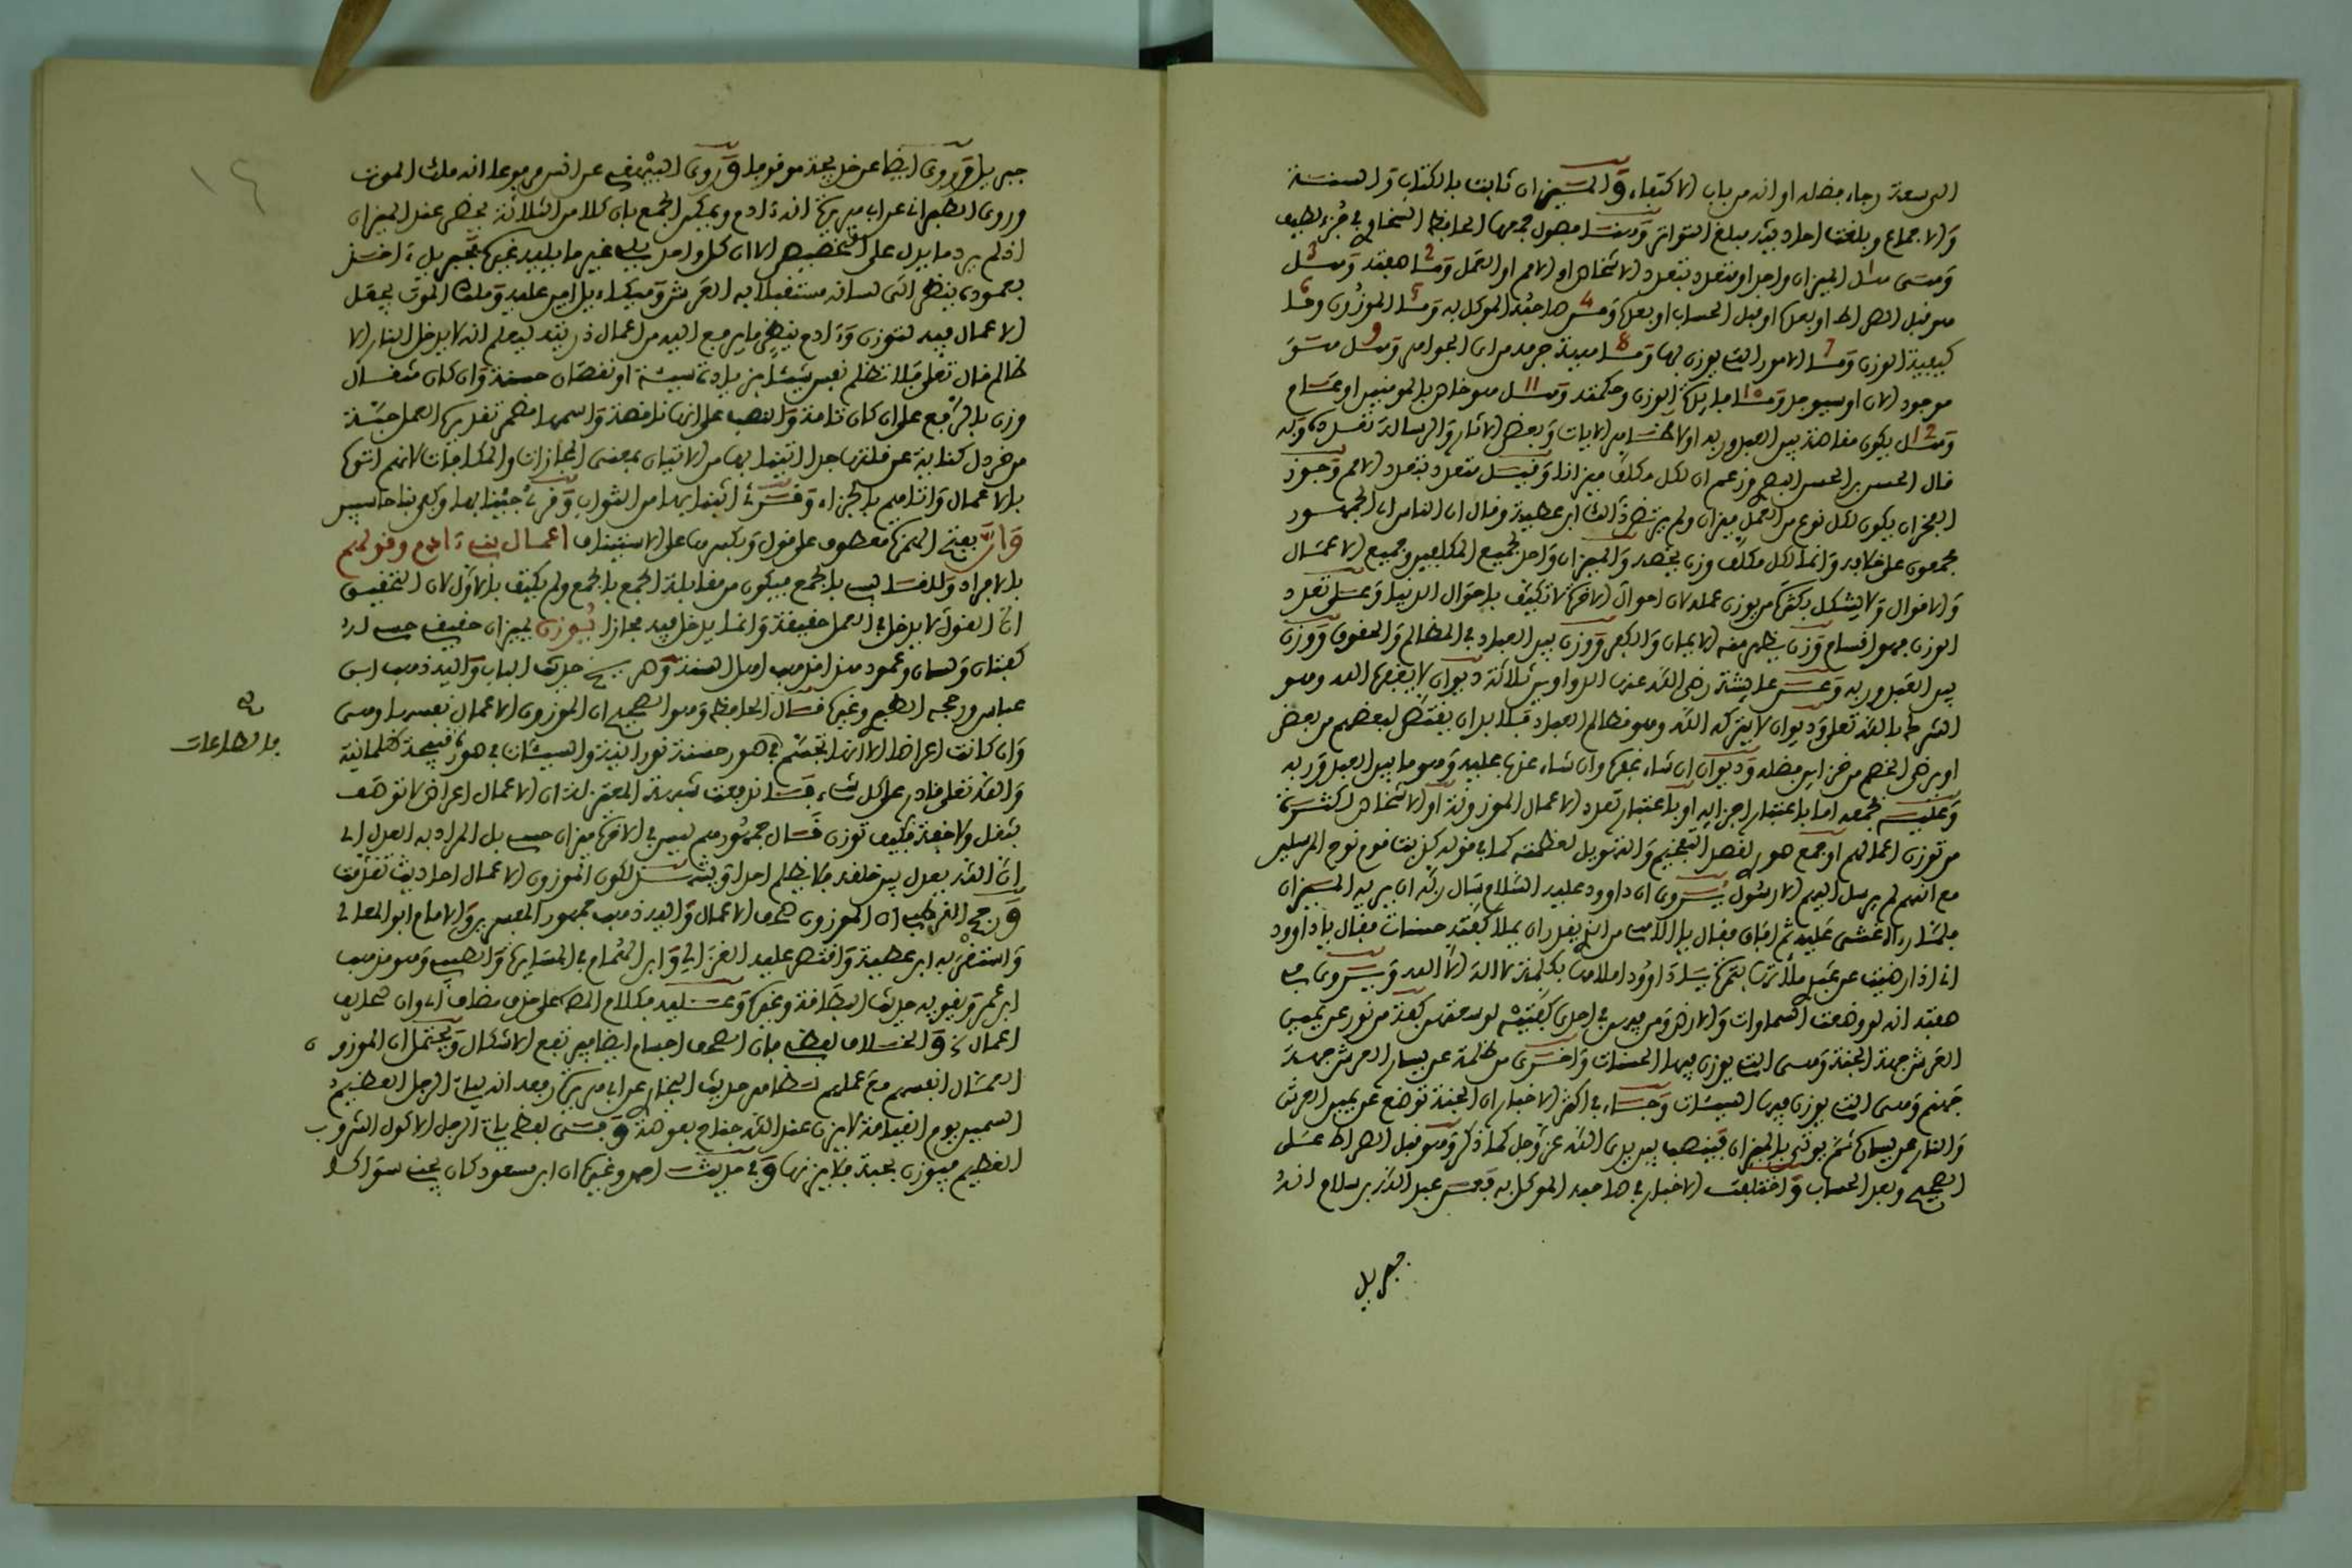 الى سعة رجاء فضله او انه من باب الاكتفاء والميزان ثابت بالكتاب والسنة
والاجماع وبلغت احاديثه مبلغ التواتر وهنا فصول جمعها الحافظ السخاوي في جزء لطيف
وهي هل الميزان واحد او متعدد بتعدد الاشخاص او الامم او العمل وما صفته وهل
هو قبل الصراط او بعده او قبل الحساب او بعده ومن صاحبه الموكل به وما الموزون وما
كيفية الوزن وما الامور التي يوزن بها وما مبدئة جرمه من اي الجواهر وهل هو
موجود الان او سيوجد وما فايدة الوزن وحكمته وهل هو خاص بالمومنين او عام
وهل يكون مقاصة بين العبد وربه او لا الايات وبعض الاثار والرسالة تعدده وبه
قال الحسن بن الحسن البصري زعم ان لكل مكلف ميزانا وقيل متعدد بتعدد الامم وجوز
الفخران يكون لكل نوع من العمل ميزان ولم يرتض ذلك ابن عطية وقال ان الناس اي الجمهور
مجمعون على خلافه وانما لكل مكلف وزن يخصه والميزان واحد لجميع المكلفين وجميع الاعمال
والاقوال ولا يشكل بكثرة من يوزن عمله لان احوال الاخرة لا تكيف باحوال الدنيا وعلى تعدد
الوزن فهو اقسام وزن يظهر منه الايمان والكفر ووزن بين العباد في المظالم والحقوق ووزن
بين العبد وربه وعن عايشة رضي الله عنها الدواوين ثلاثة ديوان لا يغفره الله وهو
الشرك بالله تعلى وديوان لا يتركه الله وهو مظالم العباد فلا بد ان يقتص لبعضهم من بعض
او يرضي الخصم من خزاين فضله وديوان ان شاء غفره وان شاء عذبه عليه وهو ما بين العبد وربه
وعليه فجمعه اما باعتبار اجزائه او باعتبار تعدد الاعمال الموزونة او الاشخاص لكثرة
من توزن اعمالهم او جمع هو لقصد التفخيم والتهويل لعظمته كما في قوله كذبت قوم نوح المرسلين
مع انهم لم يرسل اليهم الا رسول يروى ان داوود عليه السلام سال ربه ان يريه الميزان
فلما راه غشي عليه ثم افاق فقال يا الاهي من الذي يقدر ان يملا كفته حسنات فقال يا داوود
اني اذا رضيت عن عبدي ملاتها بتمرة يا داوود املاها بكلمة لا اله الا الله ويروى في
صفته انه لو وضعت السماوات والارض ومن فيهن في احدى كفتيه لوسعتهن كفة من نور عن يمين
العرش جهة الجنة وهي التي يوزن فيها الحسنات واخرى من ظلمة عن يسار العرش جهة
جهنم وهي التي يوزن فيها السيئات وجاء في اكثر الاخبار ان الجنة توضع عن يمين العرش
والنار عن يساره ثم يوتى بالميزان فينصب بين يدي الله عز وجل كما ذكر وهو قبل الصراط على
الصحيح وبعد الحساب واختلفت الاخبار في صاحبه الموكل به فعن عبد الله بن سلام انه
جبريل
جبريل وروى ايضا عن حذيفة موقوفا وروى البيهقي عن انس مرفوعا انه ملك الموت
وروى الطبراني عن ابي هريرة انه ءادم ويمكن الجمع بان كلا من الثلاثة يحضر عند الميزان
اذ لم يرد ما يدل على التخصيص الا ان كل واحد يلي غير ما يليه غيره فجبريل ءاخذ
بعموده ينظر الى لسانه مستقبلا به العرش وميكاءيل امين عليه وملك الموت يجعل
الاعمال فيه لتوزن وءادم ينظر ما يرفع اليه من اعمال ذريته ليعلم انه لا يدخل النار الا
ظالم قال تعلى فلا تظلم نفس شيئا بزيادة سيئة او نقصان حسنة وان كان مثقال
وزن بالرفع على ان كان تامة والنصب على انها ناقصة واسمها مضمر تقديره العمل حبة
من خردل كناية عن قلتها جدا اتينا بها من الاتيان بمعنى المجازات والمكافات لانهم اتوه
بالاعمال واتاهم بالجزاء وقرئ اثبنا بها من الثواب وقرئ جئنا بها وكفى بنا حاسبين
وان بفتح الهمزة معطوف على قول وبكسرها على الاستيناف اعمال بني ءادم وقولهم
بالافراد وللقابسي بالجمع فيكون من مقابلة الجمع بالجمع ولم يكتف بالاول لان التحقيق
ان القول لا يدخل في العمل حقيقة وانما يدخل فيه مجازا يوزن بميزان حقيقي حسي له
كفتان ولسان وعمود هذا مذهب اهل السنة وصريح حديث الباب واليه ذهب ابن
عباس ورجحه الطبري وغيره قال الحافظ وهو الصحيح ان الموزون الاعمال نفسها وهي
وان كانت اعراضا الا انها تجسم في صور حسنة نورانية والسيئات في صورة قبيحة ظلمانية
فالطاعات
والله تعلى قادر على كل شيء فاندفعت شبهة المعتزلة ان الاعمال اعراض لا توصف
بثقل ولا خفة فكيف توزن قال جمهورهم ليس في الاخرة ميزان حسي بل المراد به العدل اي
ان الله يعدل بين خلقه فلا يظلم احدا ويشهد لكون الموزون الاعمال احاديث تقدمت
ورجح القرطبي ان الموزون صحف الاعمال واليه ذهب جمهور المفسرين والامام ابو المعالي
واستقر به ابن عطية واقتصر عليه الغزالي وابن الهمام في المسايرة والصيت وهو مذهب
ابن عمر ويقويه حديث البطاقة وغيره وعليه فكلام المص على حذف مضاف اي وان صحايف
اعمال الخ والخلاف لفظي فان الصحف اجسام ايضا فيرتفع الاشكال ويحتمل ان الموزون
العمال انفسهم مع عملهم لظاهر حديث البخاري عن ابي هريرة رفعه انه ليات الرجل العظيم
السمين يوم القيامة لا يزن عند الله جناح بعوضة وفي لفظ يات الرجل الاكول الشروب
العظيم فيوزن بحبة فلا يزنها وفي حديث احمد وغيره ان ابن مسعود كان يجني سواكا